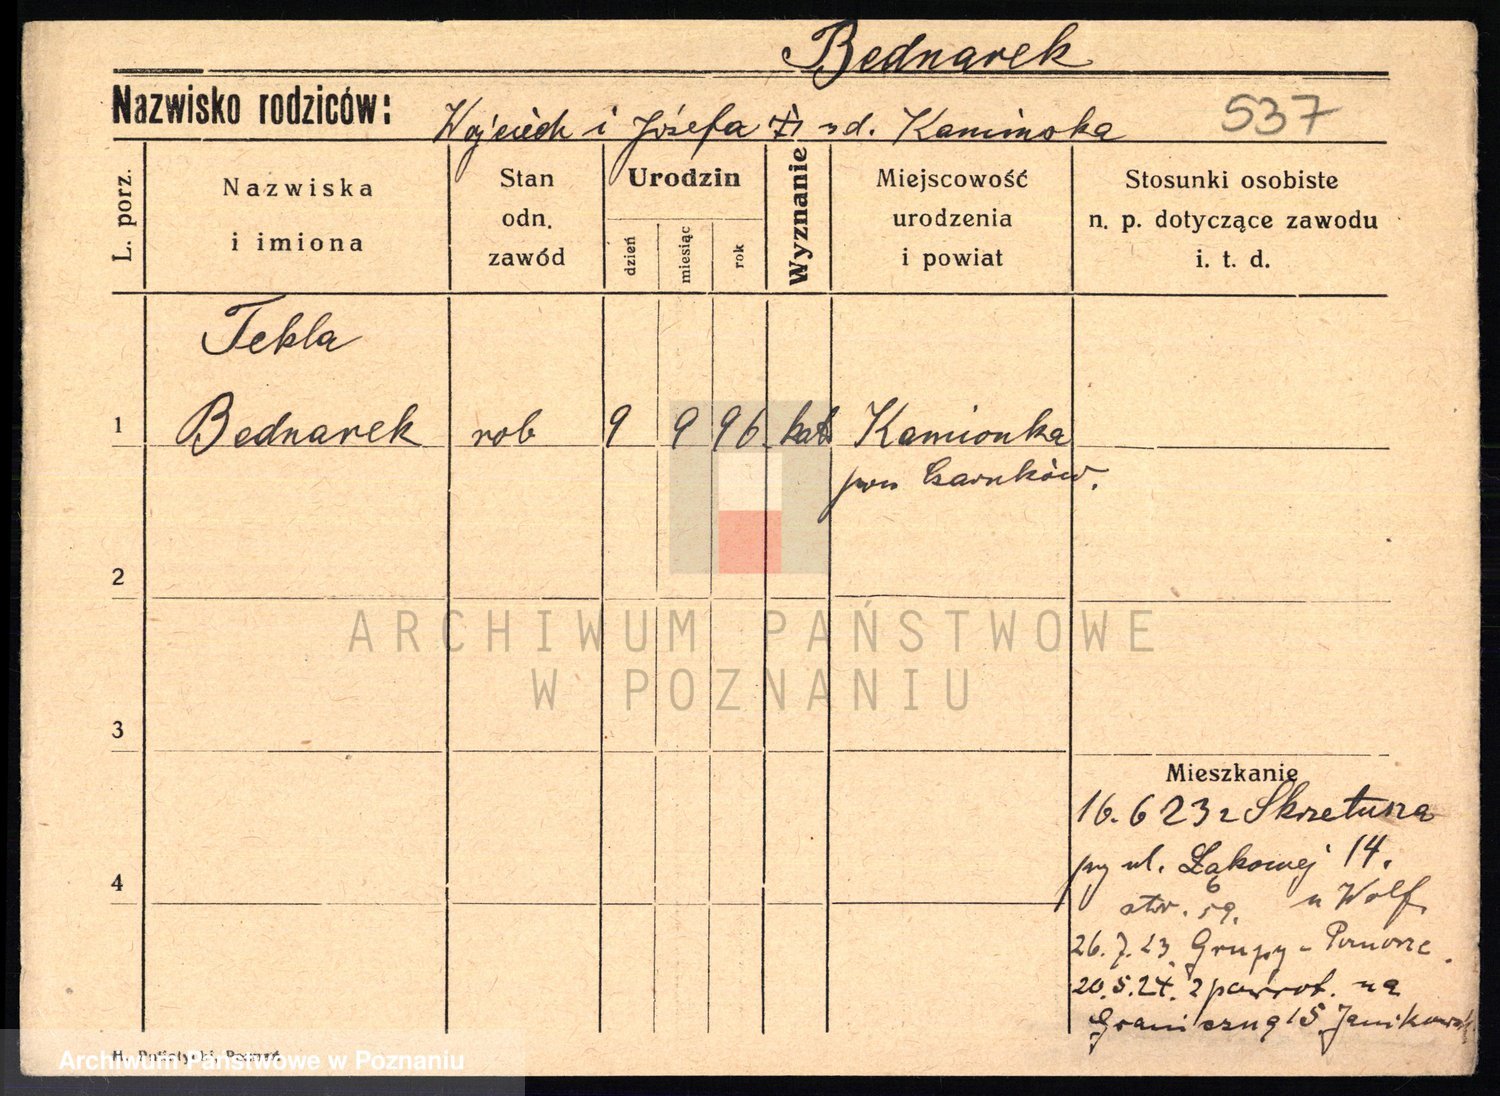 Bednarek
Nazwisko rodziców: Wojciech i Józefa zd. Kamińska 537
L. porz.
Nazwiska
i imiona
Stan
odn.
zawód
Urodzin
dzień
miesiąc
rok
Wyznanie
Miejscowość
urodzenia
i powiat
Stosunki osobiste
n. p. dotyczące zawodu
i. t. d.
Tekla
1 Bednarek rob 9 9 96 kat Kamionka
pow Czarnków.
2
ARCHIWUM PAŃSTWOWE
W POZNANIU
3
Mieszkanie
16. 6 23 z Skrzetusza
4
przy ul. Łąkowej 14.
6
59. u Wolf
26. 7. 23. Grupy - Pomorze.
20. 5. 24. z powrot. na
Graniczną 15
Archiwum Państwowe w Poznaniu